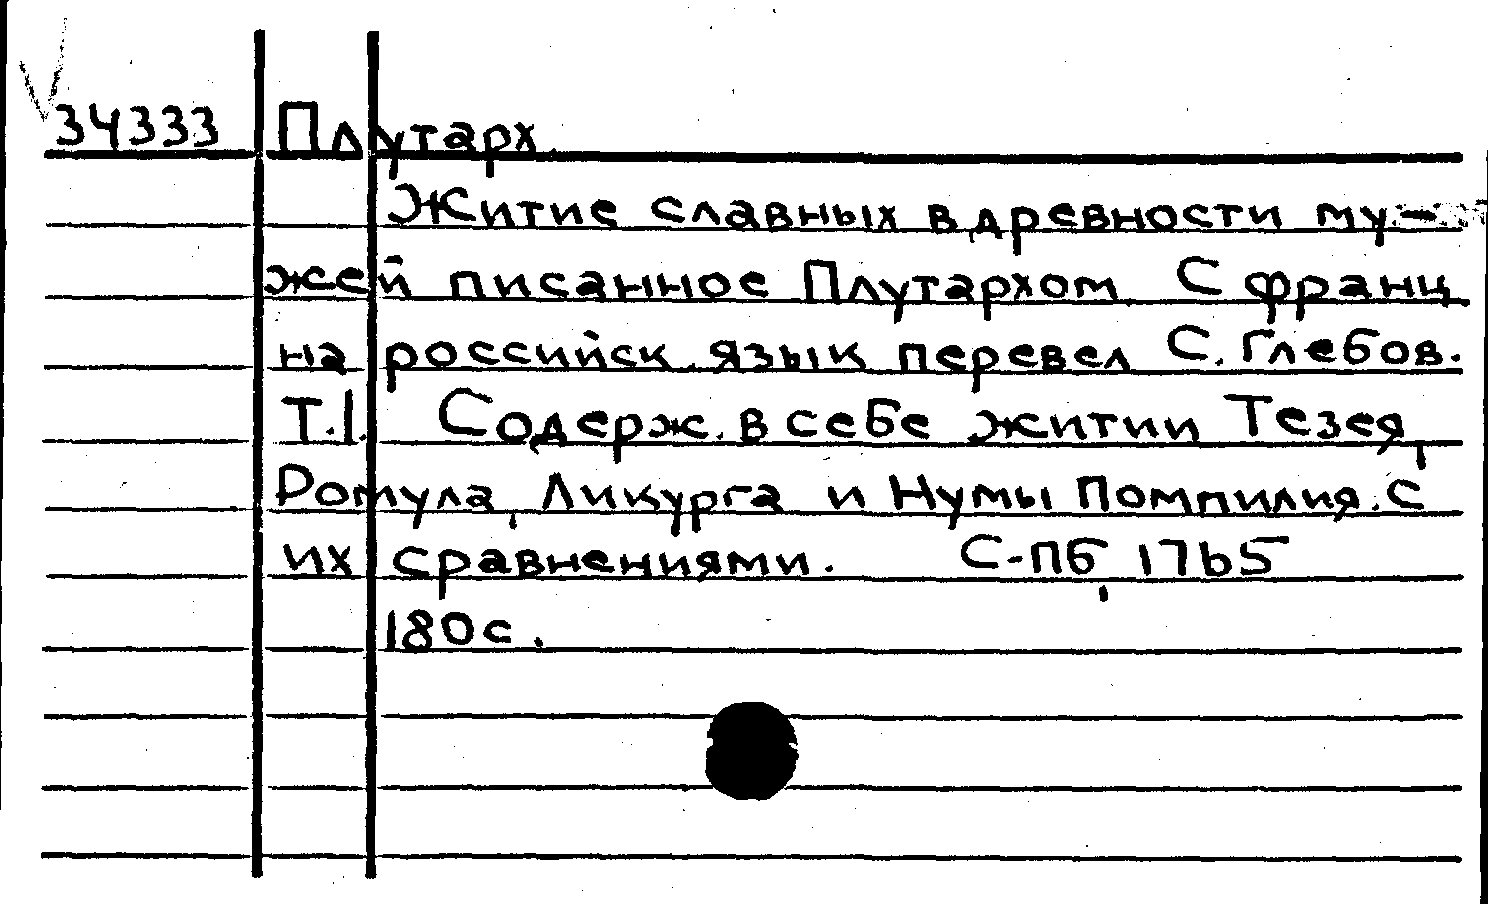 34333 Плутарх.
Житие славных в древности му-
жей писанное Плутархом. С франц
на российск. язык перевел С. Глебов.
Т.I. Содерж. в себе житии Тезея,
Ромула, Ликурга и Нумы Помпилия. С
их сравнениями. С-Пб, 1765
180 с.